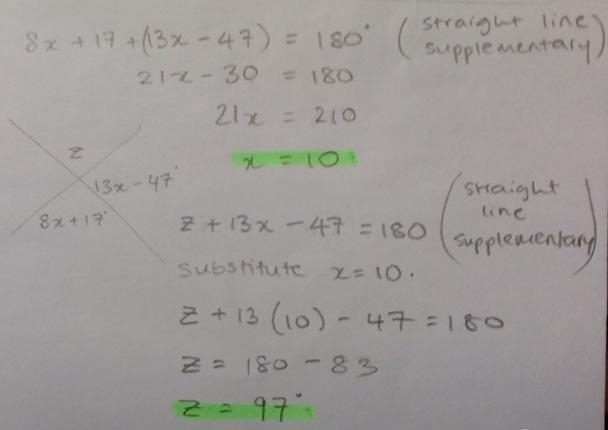 8x + 17 + (13x - 47) = 180° (straight line supplementary)
21x - 30 = 180
21x = 210
x = 10
z
13x - 47°
8x + 17°
z + 13x - 47 = 180 (straight line supplementary)
substitute x = 10.
z + 13 (10) - 47 = 180
z = 180 - 83
z = 97°